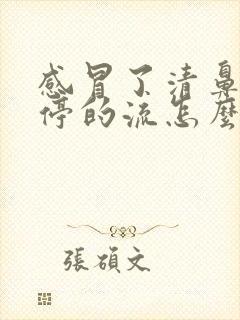 感冒了清鼻
停的流怎麼
張碩文